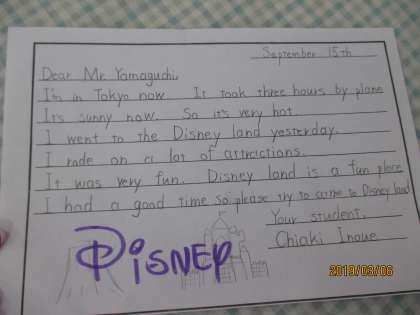 September 15th
Dear Mr. Yamaguchi,
I'm in Tokyo now. It took three hours by plane
It's sunny now. So it's very hot.
I went to the Disney land yesterday.
I rode on a lot of attractions.
It was very fun. Disney land is a fun place
I had a good time so please try to come to Disney land
Your student,
Chiaki Inoue
DisNEP
2019/03/06